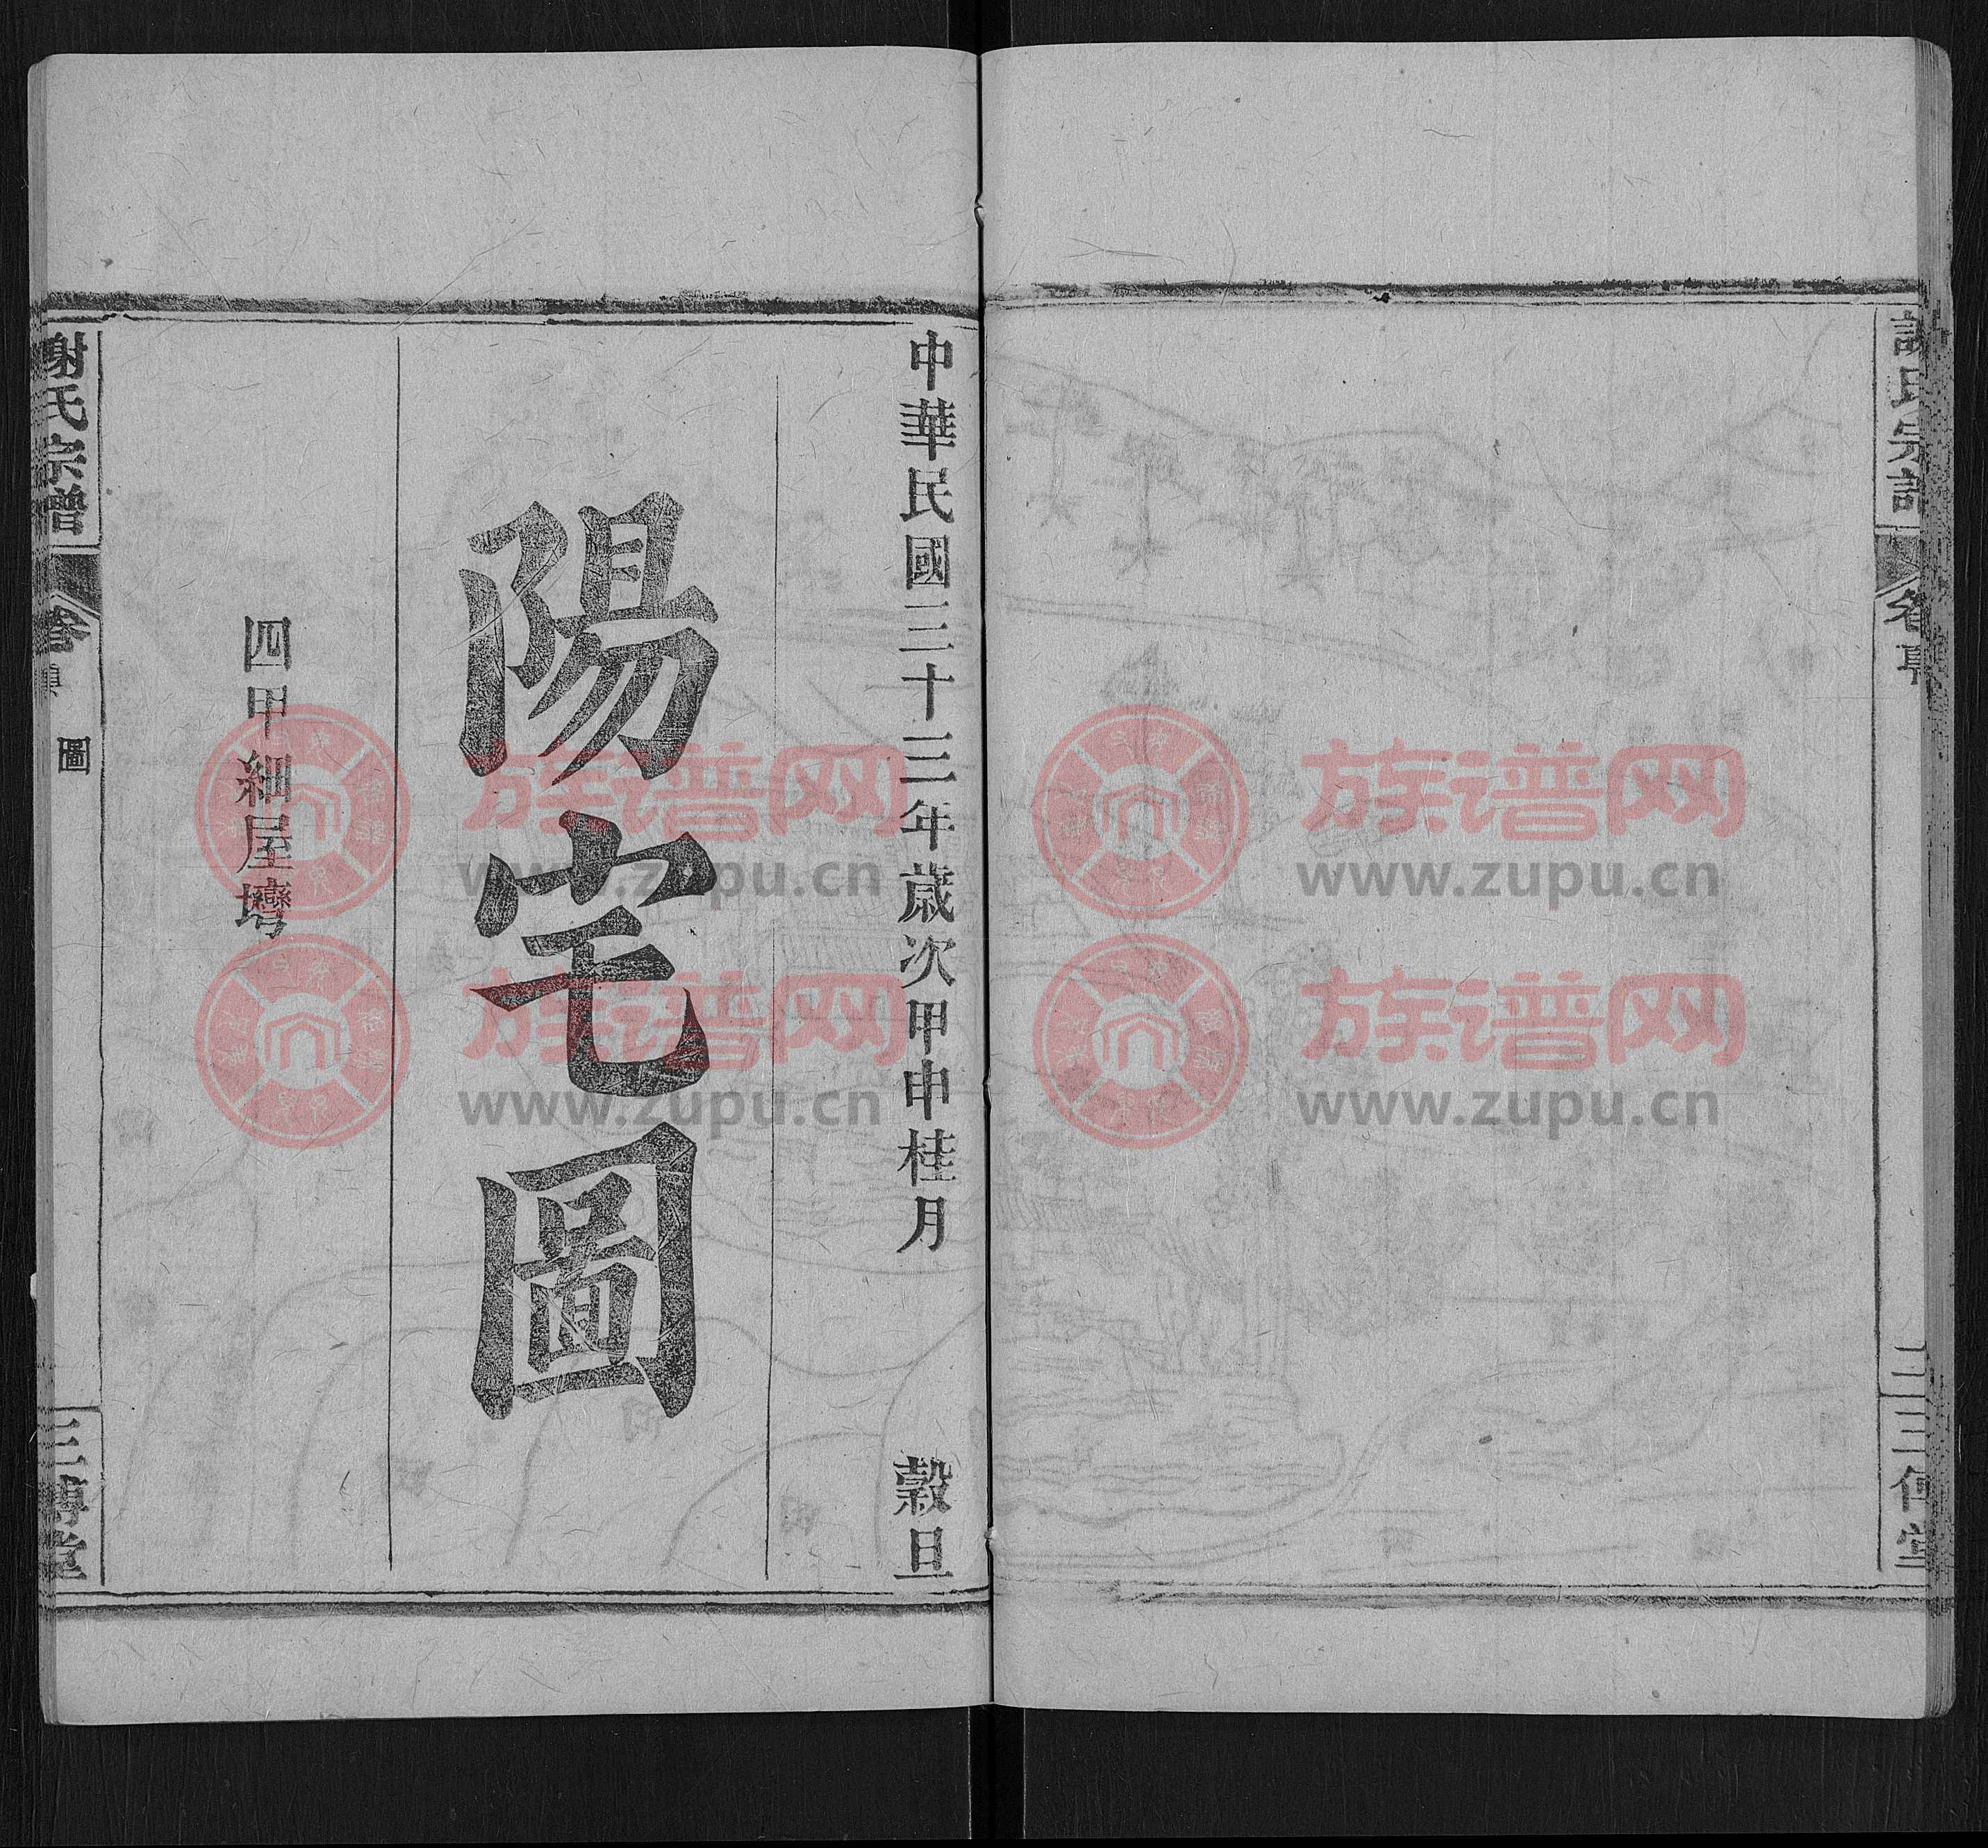 中華民國三十三年歲次甲申桂月 穀旦
陽宅圖
四甲細屋壪
謝氏宗譜
卷
圖
三傳堂
族谱网
www.zupu.cn
族谱网
www.zupu.cn
族谱网
www.zupu.cn
族谱网
www.zupu.cn